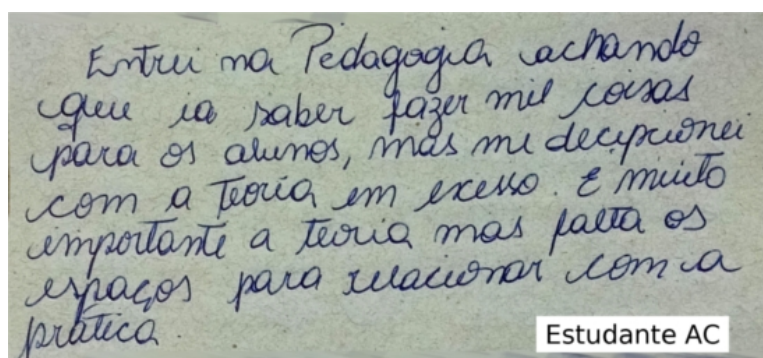 Entrei na Pedagogia achando
que ia saber fazer mil coisas
para os alunos, mas me decepcionei
com a teoria em exesso. É muito
importante a teoria mas falta os
espaços para relacionar com a
prática.
Estudante AC